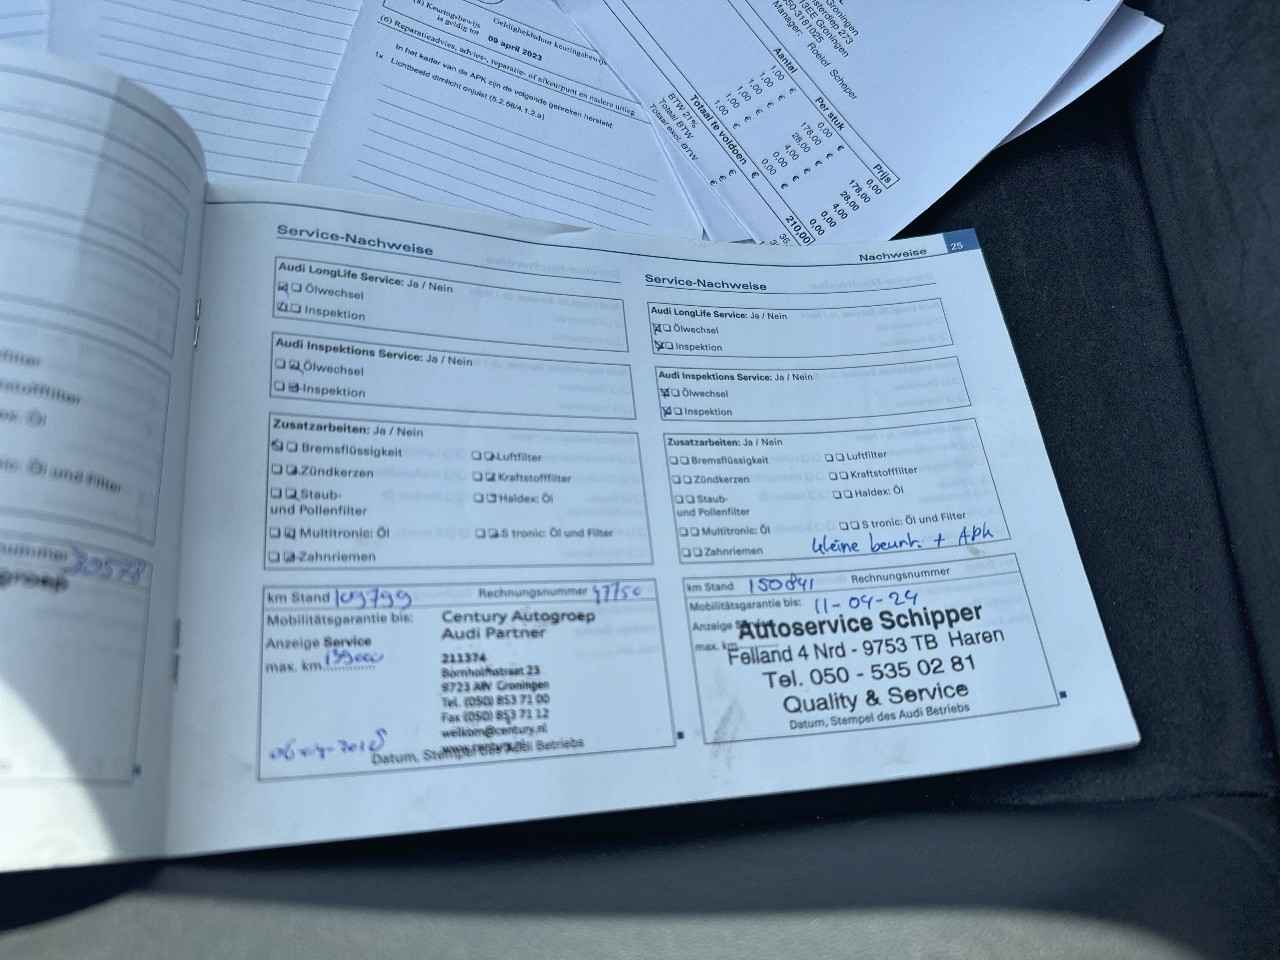 Geldigheidsduur keuringsbewijs
(8) Keuringsbewijs
is geldig tot 09 april 2023
(6) Reparatieadvies, advies-, reparatie- of afkeurpunt en nadere uitleg
In het kader van de APK zijn de volgende gebreken hersteld:
1x Lichtbeeld dimlicht onjuist (5.2.56/4.1.2.a)
Groningen
273
Groningen
050-3181025
Manager: Roelof Schipper
Aantal Per stuk Prijs
1,00 € 0,00 € 0,00
1,00 € 178,00 € 178,00
1,00 € 28,00 € 28,00
1,00 € 4,00 € 4,00
1,00 € 0,00 € 0,00
€ 0,00 € 0,00
Totaal te voldoen € 210,00
BTW 21% €
Totaal BTW €
Totaal excl. BTW €
filter
stofffilter
ex: Öl
ic: Öl und Filter
nummer 30578
groep
Nachweise 25
Service-Nachweise
Audi LongLife Service: Ja / Nein
Ölwechsel
Inspektion
Audi Inspektions Service: Ja / Nein
Ölwechsel
Inspektion
Zusatzarbeiten: Ja / Nein
Bremsflüssigkeit Luftfilter
Zündkerzen Kraftstofffilter
Staub- Haldex: Öl
und Pollenfilter
Multitronic: Öl S tronic: Öl und Filter
Zahnriemen
km Stand 109799 Rechnungsnummer 47750
Mobilitätsgarantie bis: Century Autogroep
Audi Partner
Anzeige Service 211374
max. km 139000 Bornholmstraat 23
9723 AW Groningen
Tel. (050) 853 71 00
Fax (050) 853 71 12
welkom@century.nl
www.century.nl
Datum, Stempel des Audi Betriebs
Service-Nachweise
Audi LongLife Service: Ja / Nein
Ölwechsel
Inspektion
Audi Inspektions Service: Ja / Nein
Ölwechsel
Inspektion
Zusatzarbeiten: Ja / Nein
Bremsflüssigkeit Luftfilter
Zündkerzen Kraftstofffilter
Staub- Haldex: Öl
und Pollenfilter
Multitronic: Öl S tronic: Öl und Filter
Zahnriemen kleine beurt. + APK
km Stand 150841 Rechnungsnummer
Mobilitätsgarantie bis: 11-04-24
Anzeige Service Autoservice Schipper
max. km Felland 4 Nrd - 9753 TB Haren
Tel. 050 - 535 02 81
Quality & Service
Datum, Stempel des Audi Betriebs